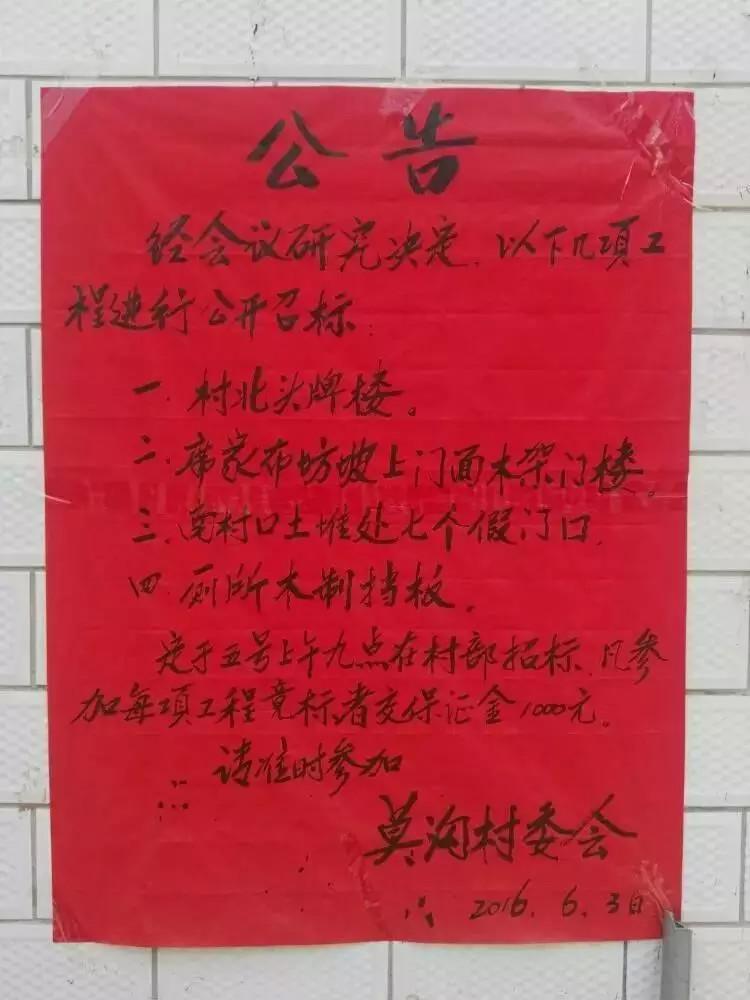 公告
经会议研究决定，以下几项工
程进行公开召标：
一．村北头牌楼。
二．席家布坊坡上门面木架门楼。
三．南村口土堆处七个假门口．
四．厕所木制挡板．
定于五号上午九点在村部招标，凡参
加每项工程竟标者交保证金1000元。
请准时参加
莫沟村委会
2016.6.3日